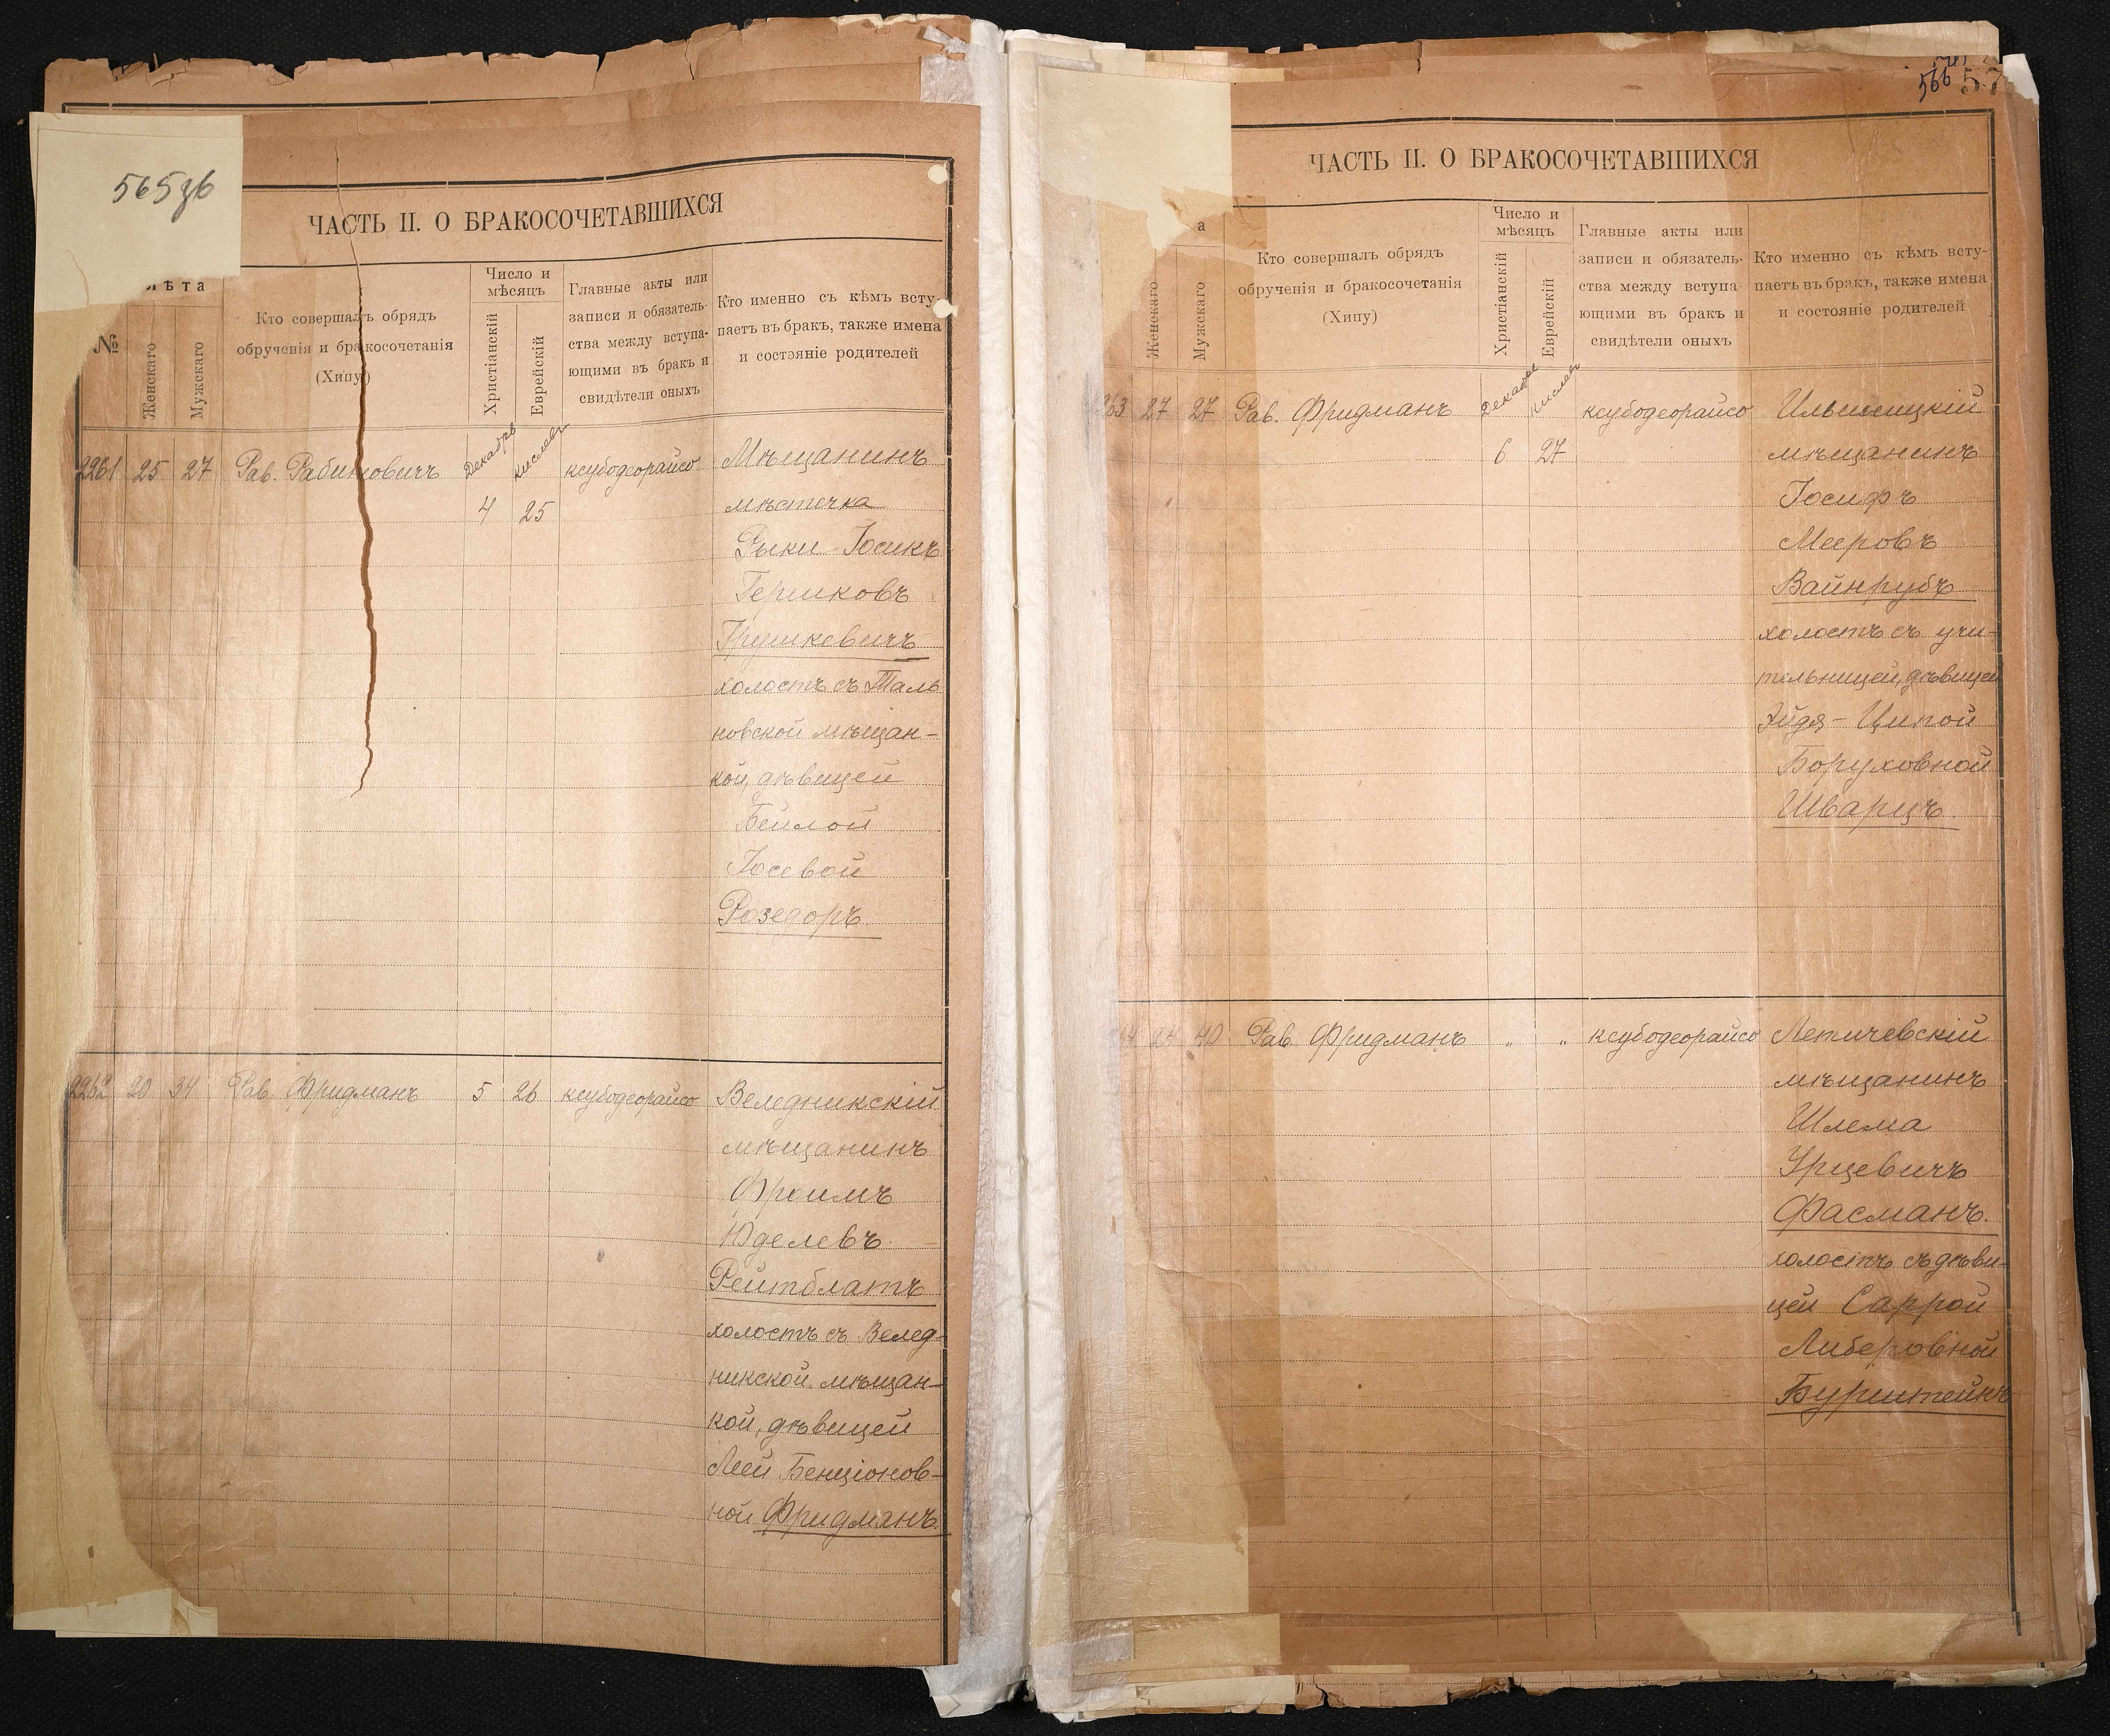 565зб
ЧАСТЬ II. О БРАКОСОЧЕТАВШИХСЯ
№
лѣта
Женскаго
Мужскаго
Кто совершалъ обрядъ
обрученія и бракосочетанія
(Хипу)
Число и
мѣсяцъ
Христіанскій
Еврейскій
Главные акты или
записи и обязатель-
ства между вступа-
ющими въ бракъ и
свидѣтели оныхъ
Кто именно съ кѣмъ всту-
паетъ въ бракъ, также имена
и состояніе родителей
2261 25 27 Рав. Рабиновичъ Декабрь Кислевъ ксубодеорайсо Мѣщанинъ
4 25 мѣстечка
Рыки Іосикъ
Гершковъ
Грушкевичъ
холостъ съ Таль
новской мѣщан-
кой, дѣвицей
Бейлой
Іосевой
Розедоръ.
2262 20 34 Рав. Фридманъ 5 26 ксубодеорайсо Веледникскій
мѣщанинъ
Фроимъ
Юделевъ
Рейтблатъ
холостъ съ Велед-
никской мѣщан-
кой, дѣвицей
Леей Бенціонов-
ной Фридманъ.
566 57
ЧАСТЬ II. О БРАКОСОЧЕТАВШИХСЯ
а
Женскаго
Мужскаго
Кто совершалъ обрядъ
обрученія и бракосочетанія
(Хипу)
Число и
мѣсяцъ
Христіанскій
Еврейскій
Главные акты или
записи и обязатель-
ства между вступа-
ющими въ бракъ и
свидѣтели оныхъ
Кто именно съ кѣмъ всту-
паетъ въ бракъ, также имена
и состояніе родителей
263 27 27 Рав. Фридманъ Декабрь Кислевъ ксубодеорайсо
6 27 мѣщанинъ
Іосифъ
Мееровъ
Вайнрубъ
холостъ съ учи-
тельницей, дѣвицей
Эйдя-Ципой
Боруховной
Шварцъ.
64 24 40 Рав. Фридманъ " " ксубодеорайсо Летичевскій
мѣщанинъ
Шлема
Урцевичъ
Фасманъ.
холостъ съ дѣви-
цей Саррой
Либеровной
Бурштейнъ